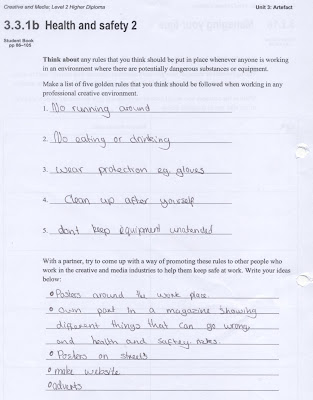 Creative and Media: Level 2 Higher Diploma
Unit 3: Artefact
3.3.1b Health and safety 2
Student Book
pp 98–105
Think about any rules that you think should be put in place whenever anyone is working
in an environment where there are potentially dangerous substances or equipment.
Make a list of five golden rules that you think should be followed when working in any
professional creative environment.
1. No running around
2. No eating or drinking
3. wear protection eg. gloves
4. Clean up after yourself
5. dont keep equipment unatended
With a partner, try to come up with a way of promoting these rules to other people who
work in the creative and media industries to help them keep safe at work. Write your ideas
below:
• Posters around the work place.
• own part in a magazine showing
different things that can go wrong
and health and saftey rules.
• Posters on streets
• make website
• adverts